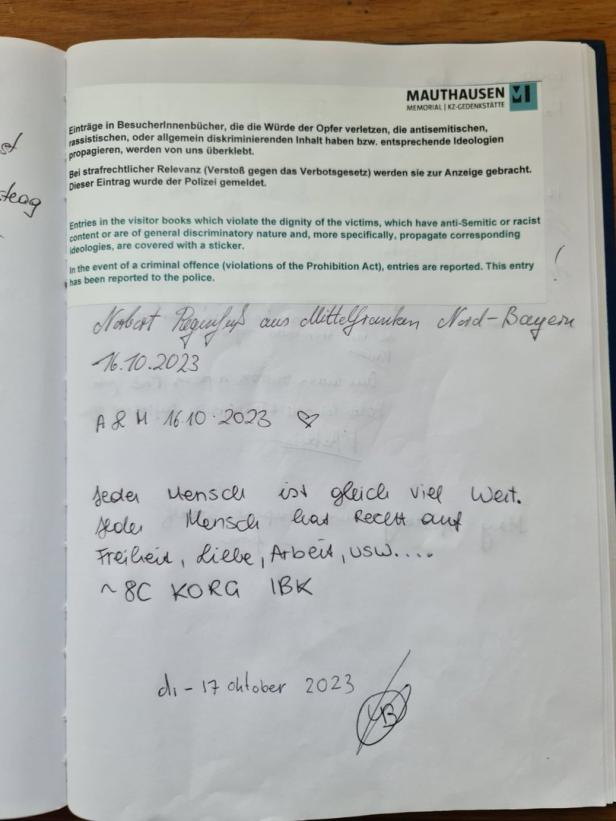 st
MAUTHAUSEN
MEMORIAL | KZ-GEDENKSTÄTTE
Einträge in BesucherInnenbücher, die die Würde der Opfer verletzen, die antisemitischen,
rassistischen, oder allgemein diskriminierenden Inhalt haben bzw. entsprechende Ideologien
propagieren, werden von uns überklebt.
Bei strafrechtlicher Relevanz (Verstoß gegen das Verbotsgesetz) werden sie zur Anzeige gebracht.
Dieser Eintrag wurde der Polizei gemeldet.
Entries in the visitor books which violate the dignity of the victims, which have anti-Semitic or racist
content or are of general discriminatory nature and, more specifically, propagate corresponding
ideologies, are covered with a sticker.
In the event of a criminal offence (violations of the Prohibition Act), entries are reported. This entry
has been reported to the police.
!
Norbert aus Mittelfranken Nord-Bayern
16.10.2023
A & M 16.10.2023 ♡
Jeder Mensch ist gleich viel Wert.
Jeder Mensch hat Recht auf
Freiheit, Liebe, Arbeit, usw....
~8C KORG IBK
di - 17 oktober 2023